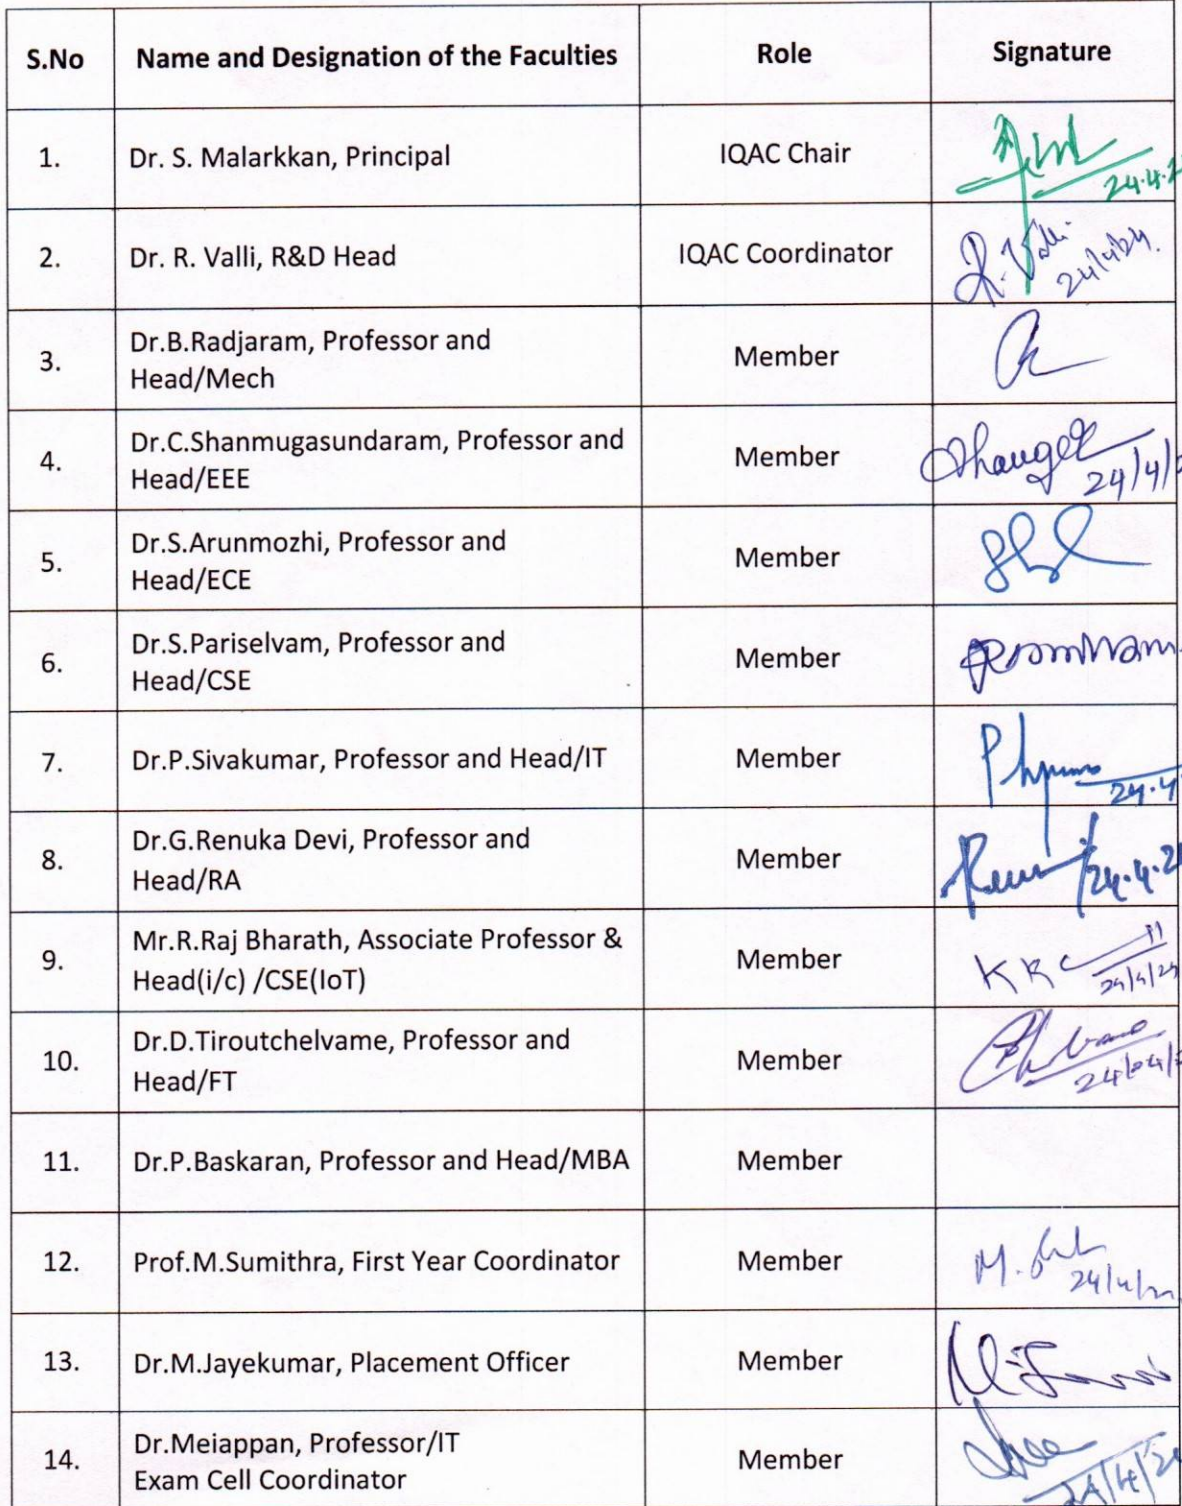 S.No Name and Designation of the Faculties Role Signature
1. Dr. S. Malarkkan, Principal IQAC Chair
24.4.2
2. Dr. R. Valli, R&D Head IQAC Coordinator R. Valli
24/4/24.
3. Dr.B.Radjaram, Professor and
Head/Mech Member
4. Dr.C.Shanmugasundaram, Professor and
Head/EEE Member
24/4/2
5. Dr.S.Arunmozhi, Professor and
Head/ECE Member
6. Dr.S.Pariselvam, Professor and
Head/CSE Member
7. Dr.P.Sivakumar, Professor and Head/IT Member
24.4
8. Dr.G.Renuka Devi, Professor and
Head/RA Member
24.4.2
9. Mr.R.Raj Bharath, Associate Professor &
Head(i/c) /CSE(IoT) Member
24/4/24
10. Dr.D.Tiroutchelvame, Professor and
Head/FT Member
24/04/
11. Dr.P.Baskaran, Professor and Head/MBA Member
12. Prof.M.Sumithra, First Year Coordinator Member
24/4/
13. Dr.M.Jayekumar, Placement Officer Member
14. Dr.Meiappan, Professor/IT
Exam Cell Coordinator Member
24/4/2